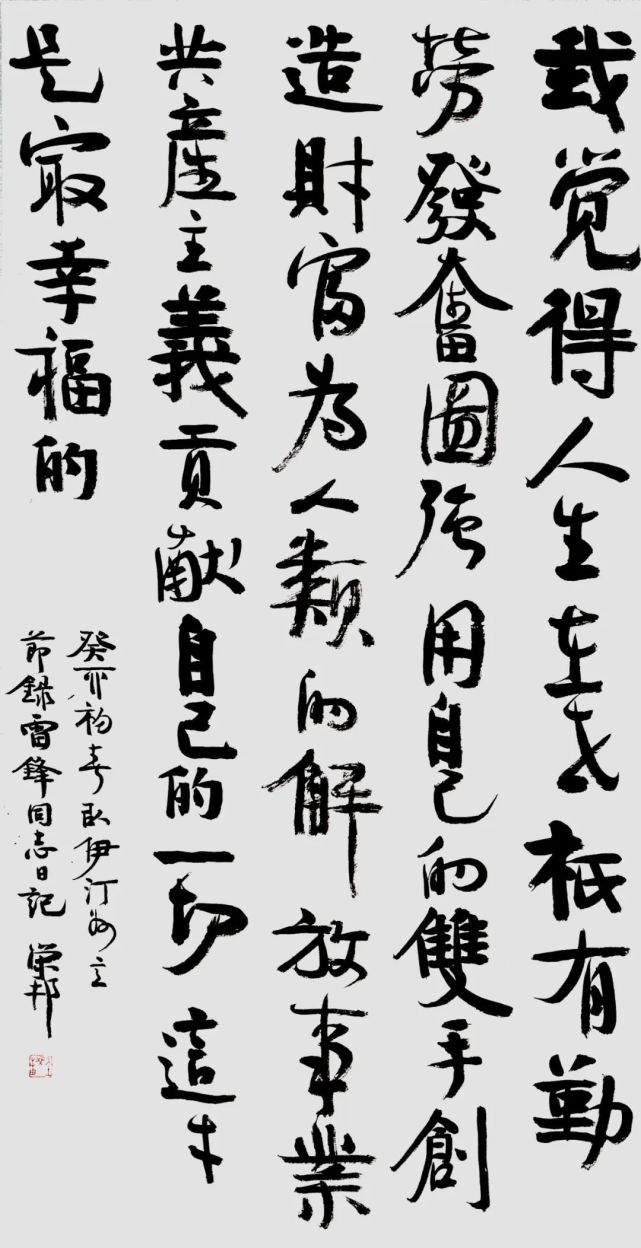 我觉得人生在世祇有勤
劳發奮圖強用自己的雙手創
造財富为人類的解放事業
共產主義貢献自己的一切這才
是最幸福的
癸卯初春
節錄雷鋒同志日記 榮邦